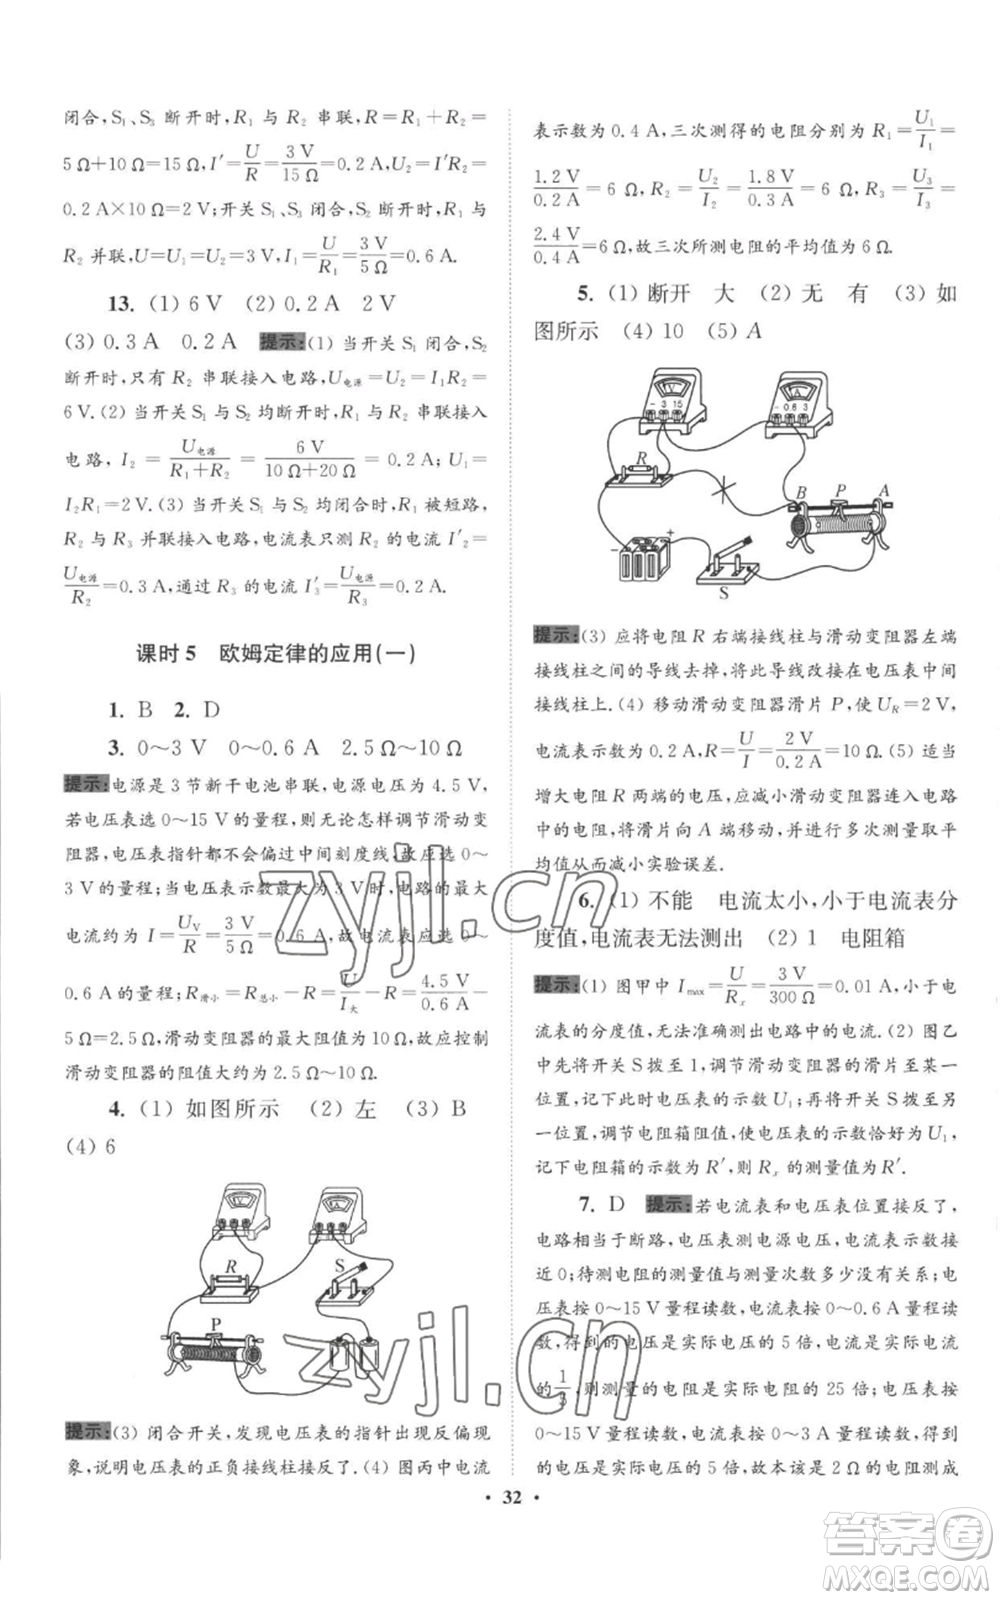 闭合,S₁、S₃ 断开时,R₁ 与 R₂ 串联,R=R₁+R₂=
5 Ω+10 Ω=15 Ω,I′=U/R=3 V/15 Ω=0.2 A,U₂=I′R₂=
0.2 A×10 Ω=2 V;开关 S₁、S₃ 闭合,S₂ 断开时,R₁ 与
R₂ 并联,U=U₁=U₂=3 V,I₁=U/R₁=3 V/5 Ω=0.6 A.
13. (1) 6 V (2) 0.2 A 2 V
(3) 0.3 A 0.2 A 提示:(1) 当开关 S₁ 闭合,S₂
断开时,只有 R₂ 串联接入电路,U电源=U₂=I₁R₂=
6 V.(2) 当开关 S₁ 与 S₂ 均断开时,R₁ 与 R₂ 串联接入
电路,I₂=U电源/(R₁+R₂)=6 V/(10 Ω+20 Ω)=0.2 A;U₁=
I₂R₁=2 V.(3) 当开关 S₁ 与 S₂ 均闭合时,R₁ 被短路,
R₂ 与 R₃ 并联接入电路,电流表只测 R₂ 的电流 I′₂=
U电源/R₂=0.3 A,通过 R₃ 的电流 I′₃=U电源/R₃=0.2 A.
课时 5 欧姆定律的应用(一)
1. B 2. D
3. 0～3 V 0～0.6 A 2.5 Ω～10 Ω
提示:电源是 3 节新干电池串联,电源电压为 4.5 V,
若电压表选 0～15 V 的量程,则无论怎样调节滑动变
阻器,电压表指针都不会偏过中间刻度线,故应选 0～
3 V 量程;当电压表示数最大为 3 V 时,电路中的最大
电流约为 I=U_V/R=3 V/5 Ω=0.6 A,故电流表应选 0～
0.6 A 的量程;R滑小=R总小-R=U/I大-R=4.5 V/0.6 A-
5 Ω=2.5 Ω,滑动变阻器的最大阻值为 10 Ω,故应控制
滑动变阻器的阻值大约为 2.5 Ω～10 Ω.
4. (1) 如图所示 (2) 左 (3) B
(4) 6
R
S
P
提示:(3) 闭合开关,发现电压表的指针出现反偏现
象,说明电压表的正负接线柱接反了.(4) 图丙中电流
表示数为 0.4 A,三次测得的电阻分别为 R₁=U₁/I₁=
1.2 V/0.2 A=6 Ω,R₂=U₂/I₂=1.8 V/0.3 A=6 Ω,R₃=U₃/I₃=
2.4 V/0.4 A=6 Ω,故三次所测电阻的平均值为 6 Ω.
5. (1) 断开 大 (2) 无 有 (3) 如
图所示 (4) 10 (5) A
V
- 3 15
A
- 0.6 3
R
B P A
- +
S
提示:(3) 应将电阻 R 右端接线柱与滑动变阻器左端
接线柱之间的导线去掉,将此导线改接在电压表中间
接线柱上.(4) 移动滑动变阻器滑片 P,使 U_R=2 V,
电流表示数为 0.2 A,R=U/I=2 V/0.2 A=10 Ω.(5) 适当
增大电阻 R 两端的电压,应减小滑动变阻器连入电路
中的电阻,将滑片向 A 端移动,并进行多次测量取平
均值从而减小实验误差.
6. (1) 不能 电流太小,小于电流表分
度值,电流表无法测出 (2) 1 电阻箱
提示:(1) 图甲中 I_max=U/Rₓ=3 V/300 Ω=0.01 A,小于电
流表的分度值,无法准确测出电路中的电流.(2) 图乙
中先将开关 S 拨至 1,调节滑动变阻器的滑片至某一
位置,记下此时电压表的示数 U₁;再将开关 S 拨至另
一位置,调节电阻箱阻值,使电压表的示数恰好为 U₁,
记下电阻箱的示数为 R′,则 Rₓ 的测量值为 R′.
7. D 提示:若电流表和电压表位置接反了,
电路相当于断路,电压表测电源电压,电流表示数接
近 0;待测电阻的测量值与测量次数多少没有关系;电
压表按 0～15 V 量程读数,电流表按 0～0.6 A 量程读
数,得到的电压是实际电压的 5 倍,电流是实际电流
的 1/5,则测量的电阻是实际电阻的 25 倍;电流表按
0～3 A 量程读数,电压表按 0～15 V 量程读数,得到
的电阻值是实际电阻值,故本该是 2 Ω 的电阻测成
· 32 ·
zyjl.cn
zyjl.cn
答案卷
MXQE.COM